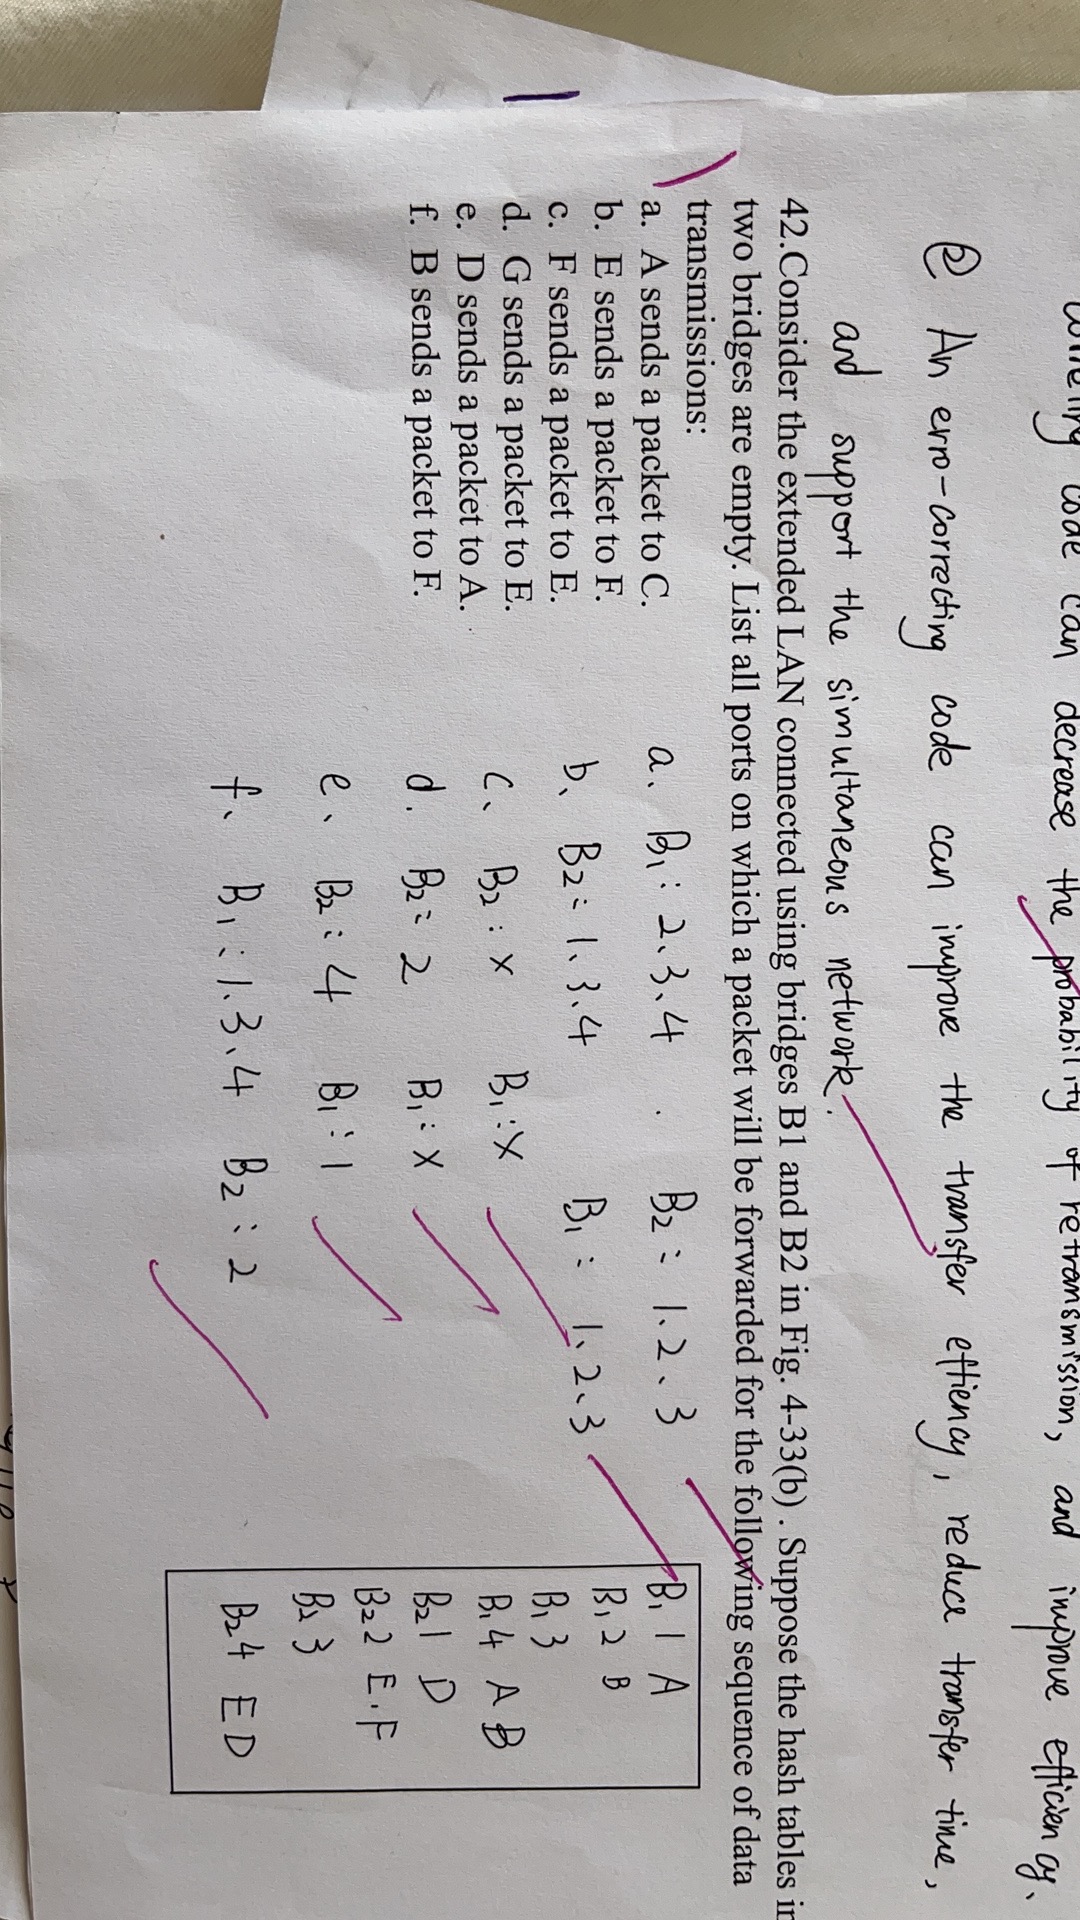 code can decrease the probability of retransmission, and improve efficiency.
② An erro-correcting code can improve the transfer effiency, reduce transfer time,
and support the simultaneous network.
42.Consider the extended LAN connected using bridges B1 and B2 in Fig. 4-33(b) . Suppose the hash tables in
two bridges are empty. List all ports on which a packet will be forwarded for the following sequence of data
transmissions:
a. A sends a packet to C.
b. E sends a packet to F.
c. F sends a packet to E.
d. G sends a packet to E.
e. D sends a packet to A.
f. B sends a packet to F.
a、 B1: 2、3、4 B2: 1、2、3
b、 B2: 1、3、4 B1: 1、2、3
c、 B2: x B1: x
d. B2: 2 B1: x
e、 B2: 4 B1: 1
f、 B1: 1.3、4 B2: 2
B1 1 A
B1 2 B
B1 3
B1 4 A D
B2 1 D
B2 2 E.F
B2 3
B2 4 E D